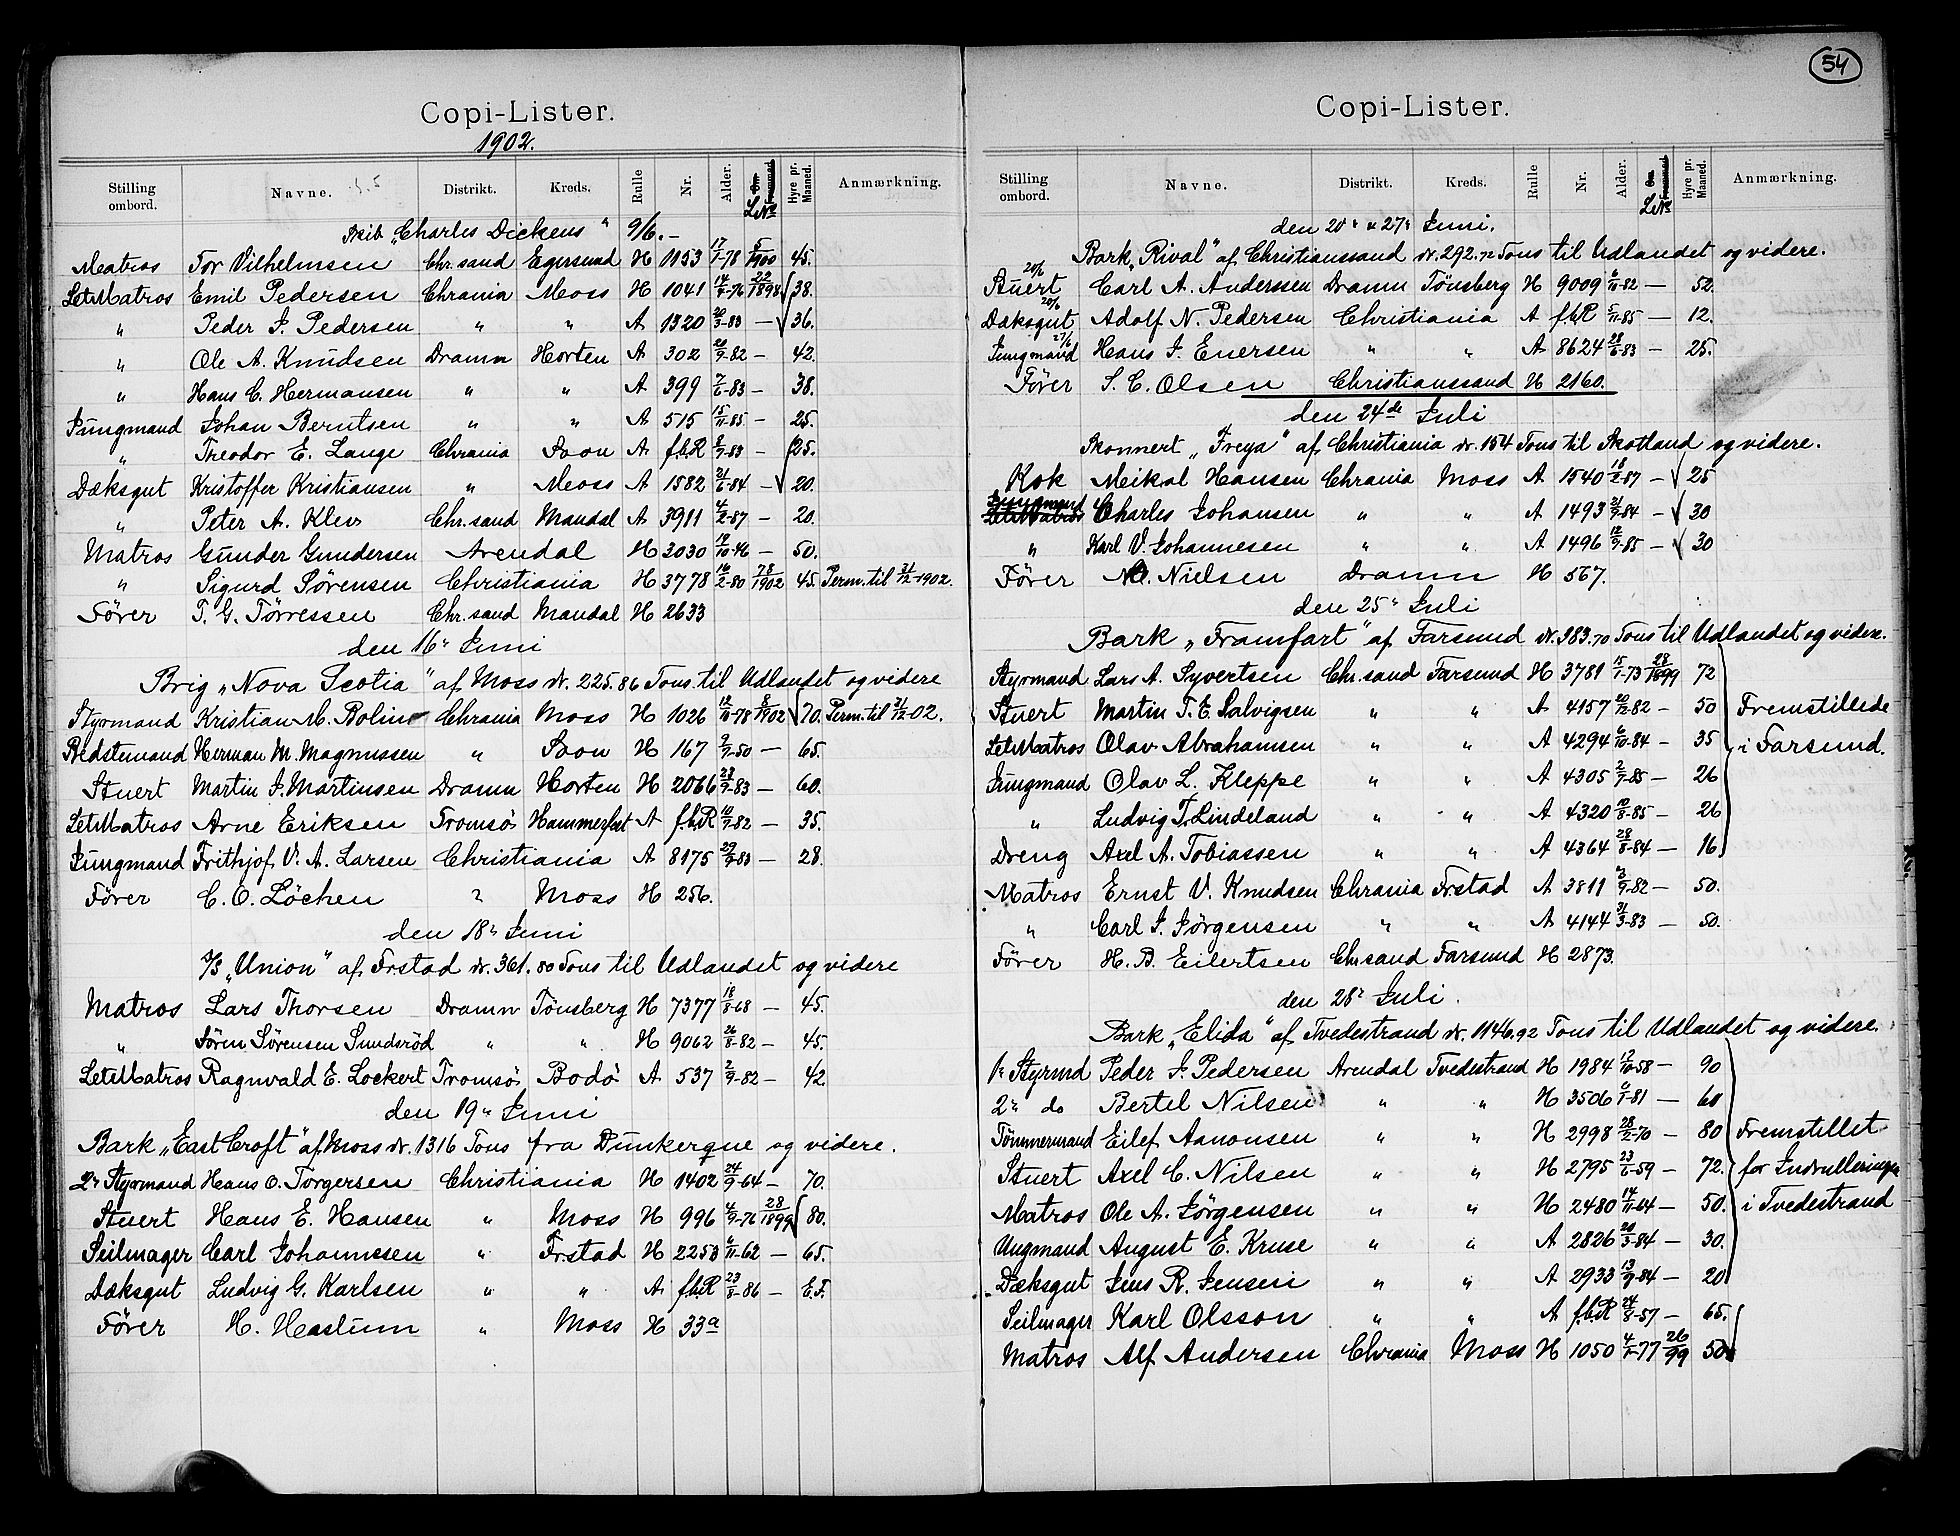 Copi-Lister.
1902.
Stilling ombord. Navne. Distrikt. Kreds. Rulle Nr. Alder. LN Hyre pr. Maaned. Anmærkning.
Skib „Charles Dickens" 9/6.-
Matros Tor Vilhelmsen Chr.sand Egersund H 1153 17/1-78 5/1900 45.
LetMatros Emil Pedersen Chrania Moss H 1041 14/9-76 22/1898 38.
" Peder J. Pedersen " " A 1320 20/3-83 — 36.
" Ole A. Knudsen Dramn Horten A 302 20/9-82 — 42.
" Hans C. Hermansen " " A 399 7/6-83 — 38.
Jungmand Johan Berntsen " " A 515 15/11-85. — 25.
" Theodor E. Lange Chrania Soon A f.b.R 8/9-83 — 25.
Dæksgut Kristoffer Kristiansen " Moss A 1582 21/6-84 — 20.
" Peter A. Klev Chr.sand Mandal A 3911 4/2-87 — 20.
Matros Gunder Gundersen Arendal H 3030 19/10-46 — 50.
" Sigurd Sörensen Christiania H 3778 16/2-80 78/1902 45. Perm. til 31/12-1902.
Förer T. G. Törressen Chr.sand Mandal H 2633
den 16" Juni
Brig „Nova Scotia" af Moss dr. 225.86 Tons til Udlandet og videre
Styrmand Kristian M. Bolin Chrania Moss H 1026 12/10-78 8/1902 70. Perm. til 31/12 02.
Bedstemand Herman M. Magnussen " Soon H 167 9/9-50 — 65.
Stuert Martin J. Martinsen Dramn Horten H 2066 28/9-83 — 60.
LetMatros Arne Eriksen Tromsö Hammerfest A f.b.R 10/9-82 — 35.
Jungmand Frithjof V. A. Larsen Christiania A 8175 29/9-83 — 28.
Förer C. O. Löchen " Moss H 256.
den 18" Juni
S/S „Union" af Frstad dr. 361.80 Tons til Udlandet og videre
Matros Lars Thorsen Dramn Tönsberg H 7377 18/8-68 — 45.
" Sören Sörensen Sundröd " " H 9062 26/8-82 — 45.
LetMatros Ragnvald E. Lockert Tromsö Bodö A 537 2/9-82 — 42.
den 19" Juni
Bark „East Croft" af Moss dr. 1316 Tons fra Dunkerque og videre.
2" Styrmand Hans O. Torgersen Christiania H 1402 24/9-64 — 70.
Stuert Hans E. Hansen " Moss H 996 4/9-76 28/1899 80.
Seilmager Carl Johannesen " Fr.stad H 2253 6/11-62 — 65.
Dæksgut Ludvig G. Karlsen " " A f.b.R 23/8-86 — E.F.
Förer H. Haslum " Moss H 33a
54
Copi-Lister.
Stilling ombord. Navne. Distrikt. Kreds. Rulle Nr. Alder. LN Hyre pr. Maaned. Anmærkning.
den 20" & 27" Juni.
Bark „Rival" af Christianssand dr. 292.72 Tons til Udlandet og videre.
20/6 Stuert Carl A. Anderssen Dramn Tönsberg H 9009 6/11-82 — 52.
20/6 Dæksgut Adolf N. Pedersen Christiania A f.b.R 5/11-85 — 12.
27/6 Jungmand Hans J. Enersen " " A 8624 28/6-83 — 25.
Förer S. C. Olsen Christianssand H 2160.
den 24de Juli
Skonnert „Freya" af Christiania dr. 154 Tons til Skotland og videre.
Kok Meikal Hansen Chrania Moss A 1540 18/2-87 — 25
Jungmand LetMatros Charles Johansen " " A 1493 21/9-84 — 30
" Karl V. Johannesen " " A 1496 12/9-85 — 30
Förer Nielsen Dramn H 567.
den 25" Juli
Bark „Framfart" af Farsund dr. 383.70 Tons til Udlandet og videre.
Styrmand Lars A. Syvertsen Chr.sand Farsund H 3781 15/1-73 28/1899 72
Stuert Martin T. E. Salvigsen " " A 4157 20/12-82 — 50 Fremstillede
LetMatros Olav Abrahamsen " " A 4294 6/10-84 — 35 i Farsund.
Jungmand Olav L. Kleppe " " A 4305 2/9-85 — 26
" Ludvig T. Lindeland " " A 4320 19/8-85 — 26
Dreng Axel A. Tobiassen " " A 4364 28/8-84 — 16
Matros Ernst V. Knudsen Chrania Frstad A 3811 3/9-82 — 50.
" Carl J. Jörgensen " " A 4144 31/3-83 — 50.
Förer H. B. Eilertsen Chr.sand Farsund H 2873.
den 28" Juli.
Bark „Elida" af Tvedestrand dr. 1146.92 Tons til Udlandet og videre.
1" Styrmd Peder J. Pedersen Arendal Tvedestrand H 1984 12/10-58 — 90
2" do Bertel Nilsen " " H 3506 6/1-81 — 60
Tömmermand Eilef Aanonsen " " H 2998 28/2-70 — 80 Fremstillet
Stuert Axel C. Nilsen " " H 2795 23/6-59 — 72. for Indrulleringen
Matros Ole A. Jörgensen " " H 2480 14/11-64 — 50. i Tvedestrand
Ungmand August E. Kruse " " A 2826 20/3-84 — 30.
Dæksgut Jens R. Jensen " " A 2933 13/9-84 — 20
Seilmager Karl Olsson " " A f.b.R 24/8-57 — 65.
Matros Alf Andersen Chrania Moss H 1050 4/1-77 26/99 50.